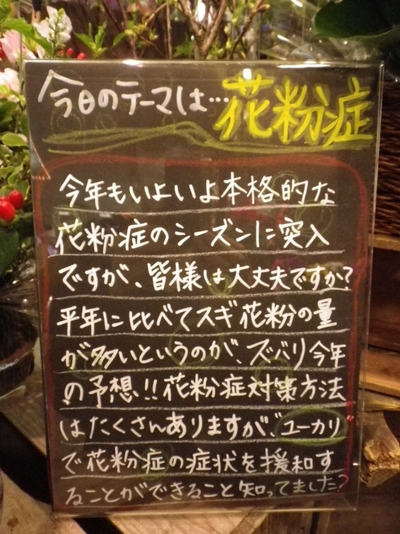 今日のテーマは…花粉症
今年もいよいよ本格的な
花粉症のシーズンに突入
ですが、皆様は大丈夫ですか?
平年に比べてスギ花粉の量
が多いというのが、ズバリ今年
の予想!!花粉症対策方法
はたくさんありますが、ユーカリ
で花粉症の症状を援和す
ることができること知ってました?